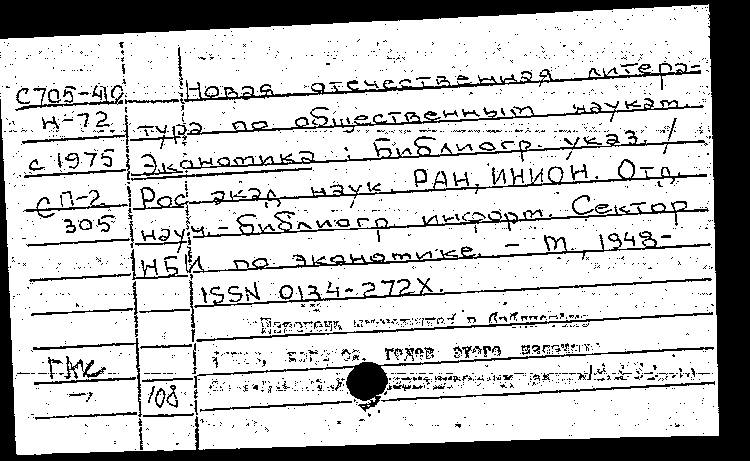 С705-410 Новая отечественная литера=
Н-72 тура по общественным наукам.
с 1975 Экономика : Библиогр. указ. /
СП-2 Рос акад наук. РАН, ИНИОН. Отд.
305 науч.-библиогр информ. Сектор
НБИ по экономике. - М., 1948-
ISSN 0134-272X.
в библиотеке
годов этого издания
ГАК
108